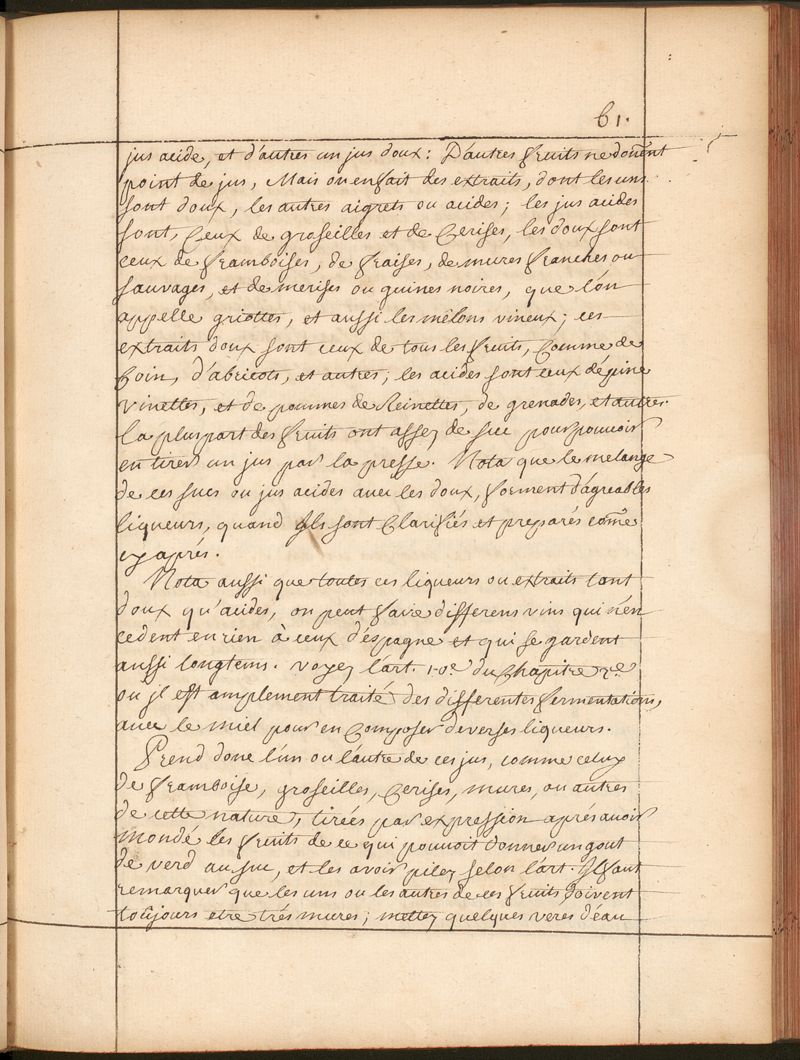 61.
jus acide, et d'autres un jus doux: D'autres fruits ne donēnt
point de jus, Mais on en fait des extraits, dont les uns
sont doux, les autres aigrets ou acides; les jus acides
sont, Ceux de groseilles et de Cerises, les doux sont
ceux de framboises, de fraises, de mures franches ou
sauvages, et de merises ou guines noires, que l'on
appelle griottes, et aussi les mélons vineux; ces
extraits doux sont ceux de tous les fruits, Comme de
Coin, d'abricots, et autres; les acides sont ceux d'épine
vinettes, et de pommes de Reinettes, de grenades, et autres.
La pluspart des fruits ont assez de suc pour pouvoir
en tirer un jus par la presse. Nota que le melange
de ces sucs ou jus acides avec les doux, forment d'agreables
liqueurs, quand Ils sont Clarifiés et preparés com̄e
cy aprés.
Nota aussi que toutes ces liqueurs ou extraits tant
doux qu'acides, on peut faire differens vins qui n'en
cedent en rien à ceux d'éspagne et qui se gardent
aussi longtems. voyez l'art. 10e. du Chapitre 2e
ou jl est amplement traité des differentes fermentations,
avec le miel pour en Composer diverses liqueurs.
Prend donc l'un ou l'autre de ces jus, comme celuy
de framboise, groseilles, Cerises, mures, ou autres
de cette nature, tirées par expression aprés avoir
Mondé les fruits de ce qui pouvoit donner un gout
de verd au suc, et les avoir pilez selon l'art. Il faut
remarquer que les uns ou les autres de ces fruits doivent
toûjours etre trés mures; mettez quelques veres d'éau